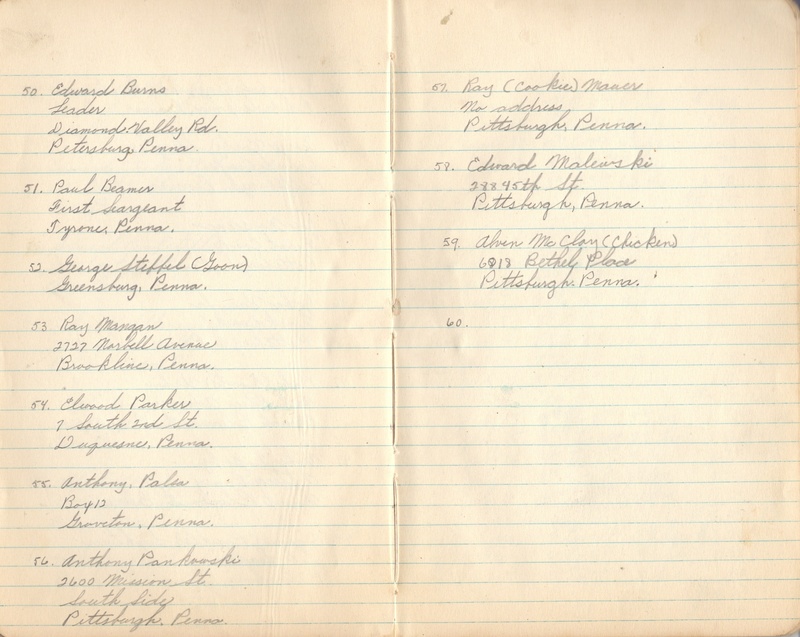 50. Edward Burns
Leader
Diamond Valley Rd.
Petersburg, Penna.
51. Paul Beamer
First Seargeant
Tyrone, Penna.
52. George Steffel (Goon)
Greensburg, Penna.
53 Ray Mangan
2727 Norbell Avenue
Brookline, Penna.
54. Elwood Parker
7 South 2nd St.
Duquesne, Penna.
55. Anthony, Palsa
Box 12
Groveton, Penna.
56. Anthony Pankowski
2600 Mission St.
South Side
Pittsburgh, Penna.
57. Ray (Cookie) Mauer
No address
Pittsburgh, Penna.
58. Edward Maleivski
288 45th St.
Pittsburgh, Penna.
59. Alvin McCloy (Chicken)
6918 Bethel Place
Pittsburgh, Penna.
60.